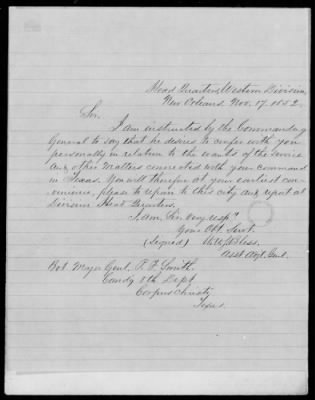 Head Quarters, Western Division,
New Orleans. Nov. 17. 1852.
Sir,
I am instructed by the Commanding
General to say that he desires to confer with you
personally in relation to the wants of the service
and other matters connected with your command
in Texas. You will therefore at your earliest con-
venience, please to repair to this city and report at
Division Head Quarters.
I am, Sir, very resp"
Your Obt. Servt.
(Signed) W. W. S. Bliss.
Asst Adjt. Genl.
Bvt. Major Genl. P. F. Smith.
Comdg 8th Dept
Corpus Christy
Texas.